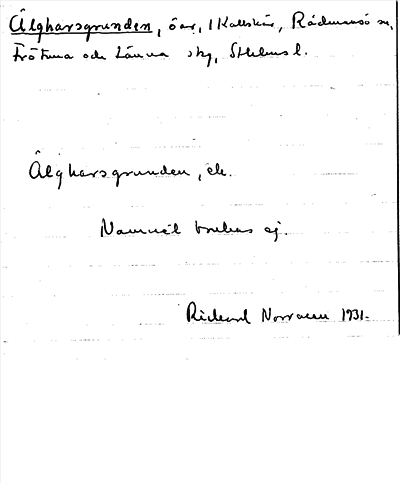 Ålgharsgrunden, öar, i Kallskär, Rådmansö sn,
Frötuna och Länna skg, Sthlms l.
Ålgharsgrunden, ek.
Namnet brukas ej.
Rickard Norrman 1931.